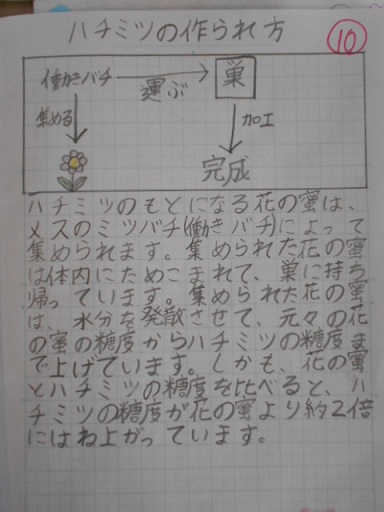 ハチミツの作られ方
10
働きバチ 運ぶ 巣
集める 加工
完成
ハチミツのもとになる花の蜜は、
メスのミツバチ(働きバチ)によって
集められます。集められた花の蜜
は体内にためこまれて、巣に持ち
帰っています。集められた花の蜜
は、水分を発散させて、元々の花
の蜜の糖度からハチミツの糖度ま
で上げています。しかも、花の蜜
とハチミツの糖度を比べると、ハ
チミツの糖度が花の蜜より約2倍
にはね上がっています。